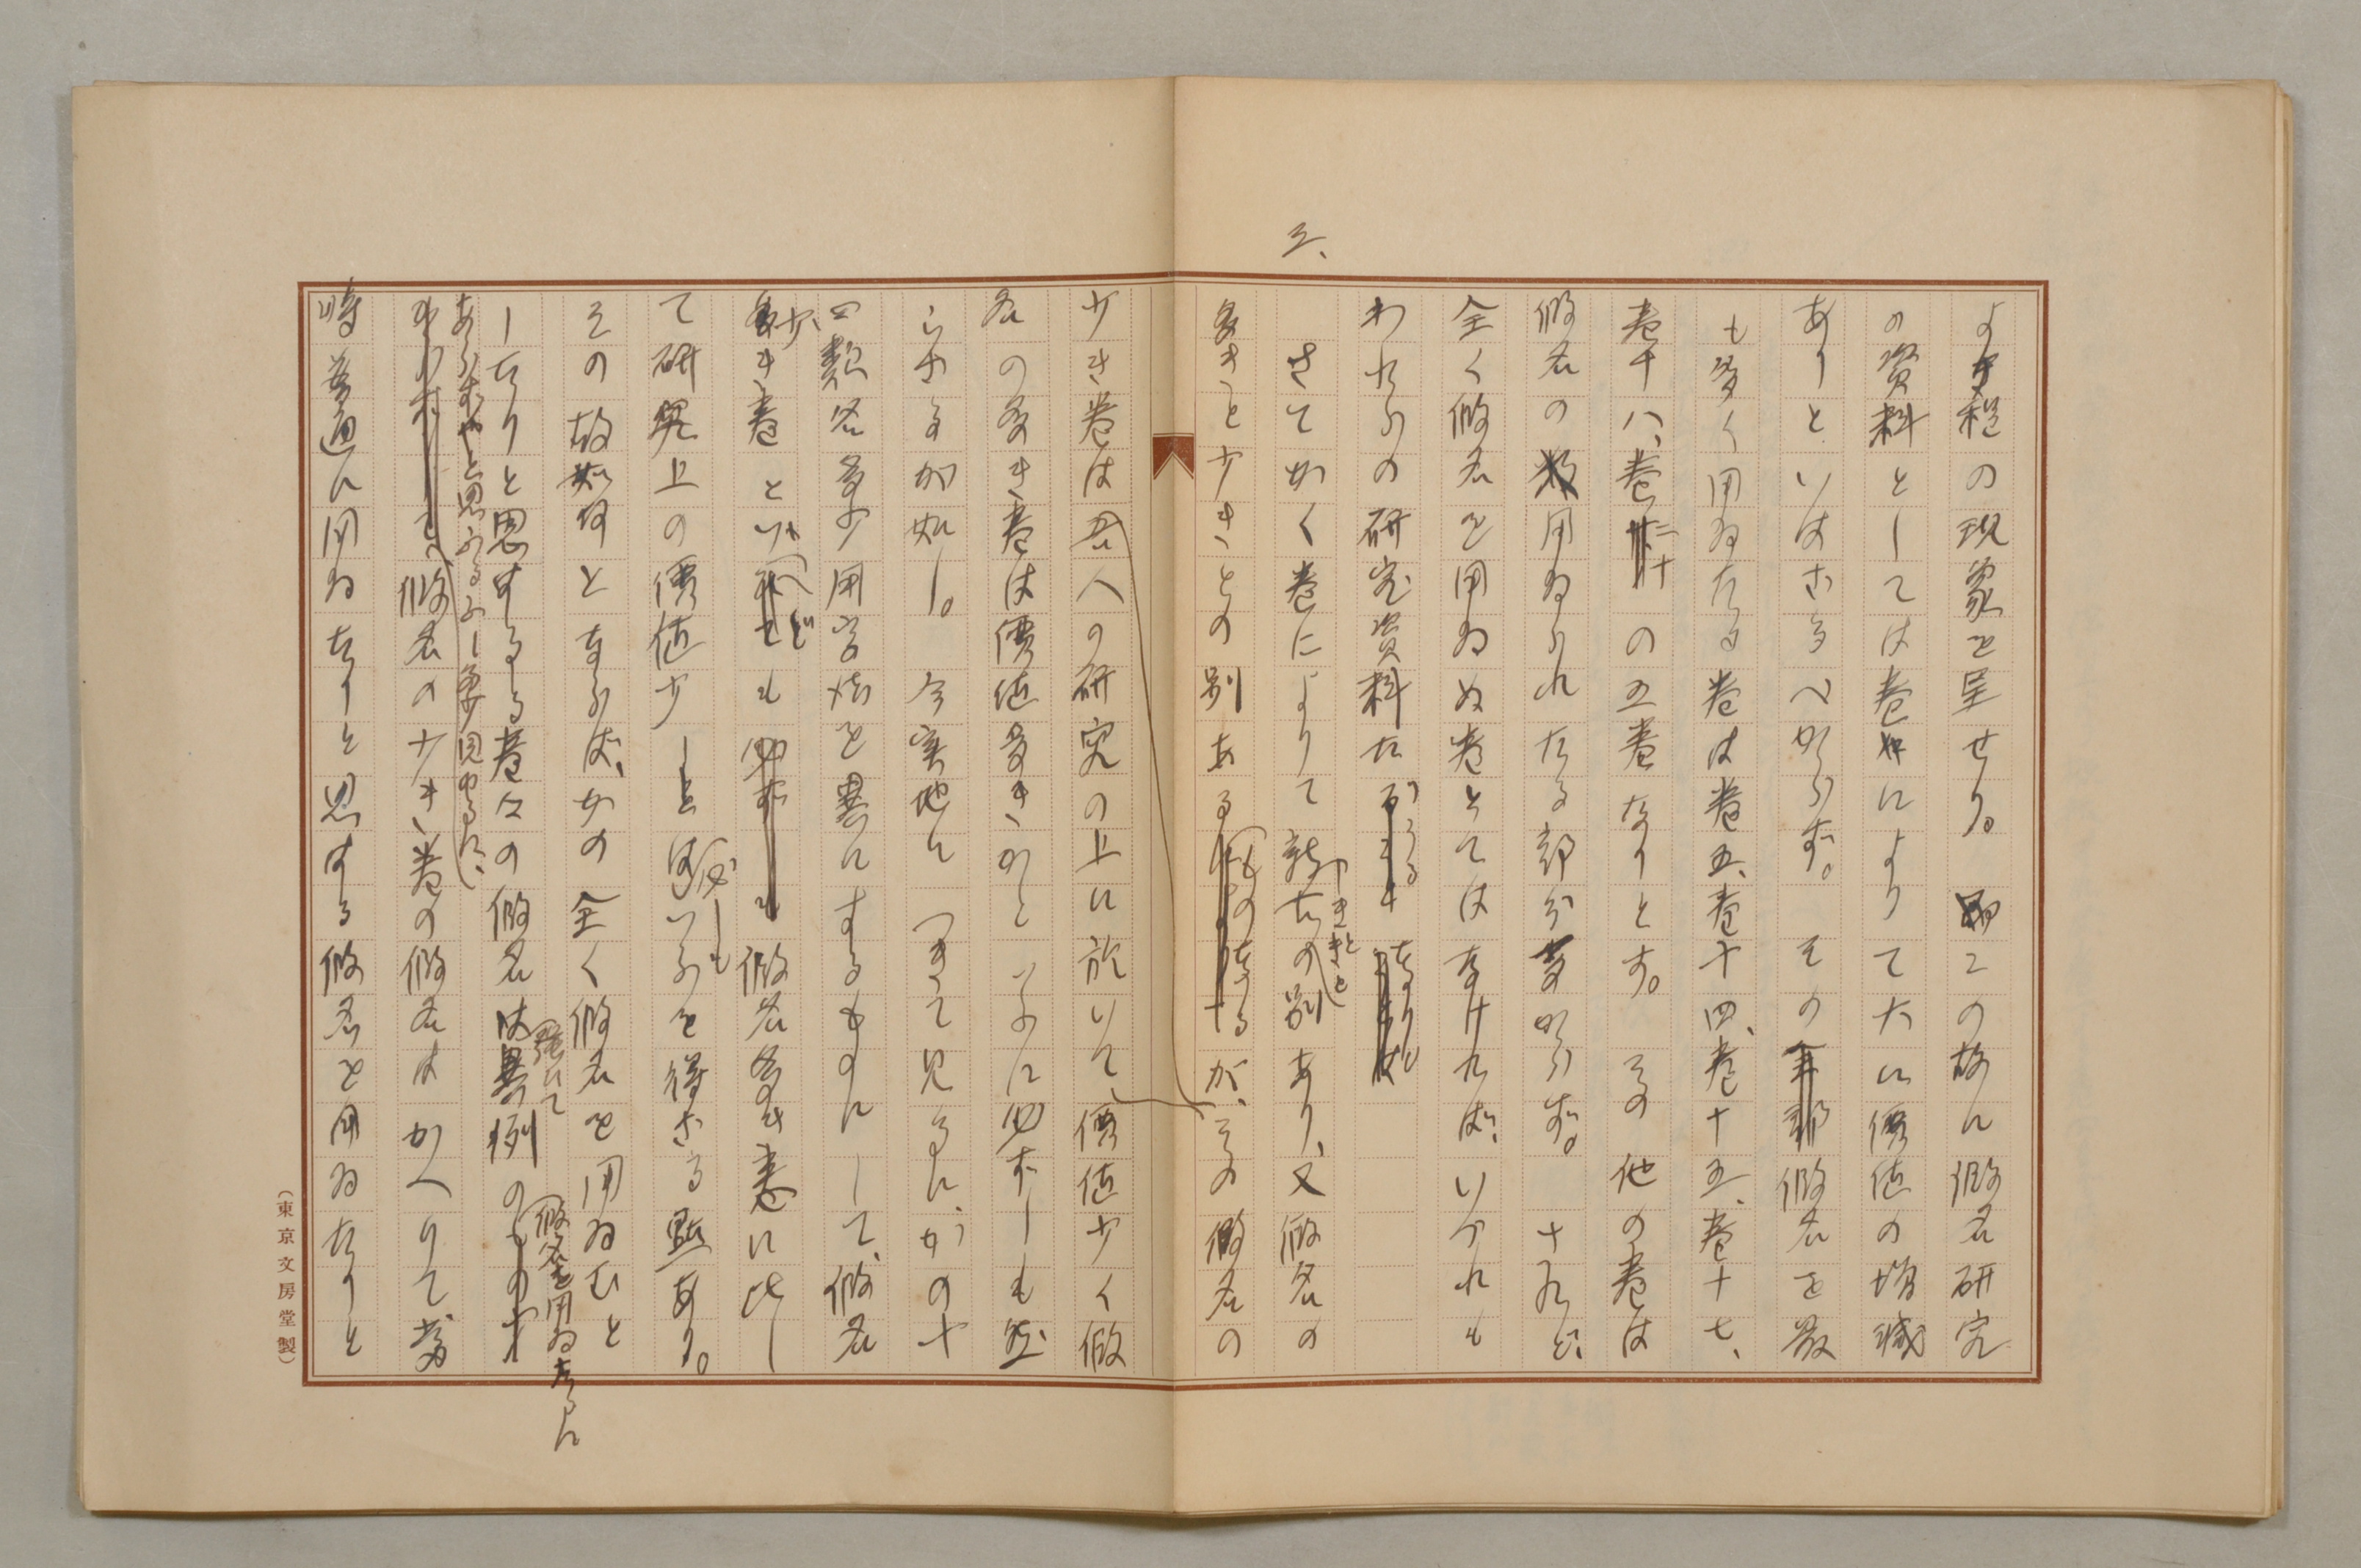 三、
よき程の現象を呈せり。この故に假名研究
の資料としては巻々によりて大に價値の増減
ありといはざるべからず。その假名を最
も多く用ゐたる巻は巻五、巻十四、巻十五、巻十七、
巻十八、巻二十の五巻なりとす。その他の巻は
假名の用ゐられたる部分多からず。されど、
全く假名を用ゐぬ巻とてはなければ、いづれも
われらの研究資料たりうるなり。
さてかく巻によりて新古の別あり、又假名の
多きと少きとの別あるものなるが、その假名の
少き巻は吾人の研究の上に於いて、價値少く假
名の多き巻は價値多きかといふに必ずしも然
らざるが如し。今実地につきて見るに、かの十
四類各多少用字法を異にするものにして、假名
少き巻といへども假名多き巻に比し
て研究上の價値少しとは必しもいふを得ざる點あり。
その故如何となれば、かの全く假名を用ゐむと
したりと思はるる巻々の假名は 例の 假名を用ゐたるに
あらずやと思ふふし多少見ゆるに、
假名の少き巻の假名はかへりて當
時普通に用ゐたりと思はるる假名を用ゐたりと
（東京文房堂製）